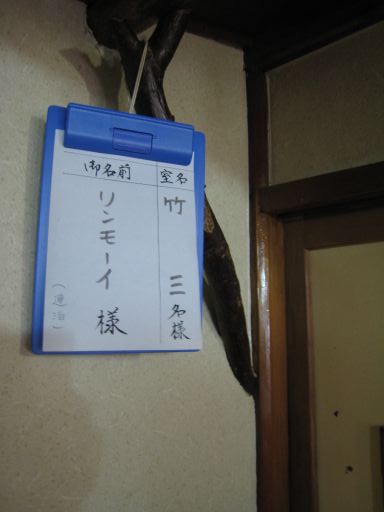 室名
竹
三名様
御名前
リンモーイ様
(連泊)